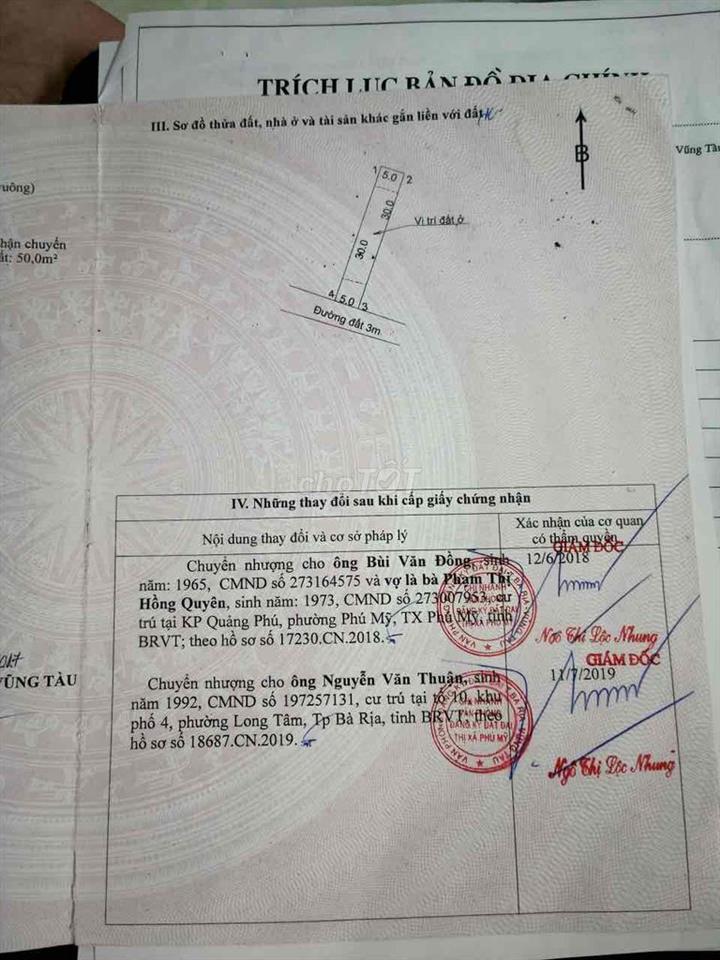 TRÍCH LỤC BẢN ĐỒ ĐỊA CHÍNH
III. Sơ đồ thửa đất, nhà ở và tài sản khác gắn liền với đất
Vũng Tàu
uông)
hận chuyển
ất: 50,0m²
B
1 5.0 2
30.0
Vị trí đất ở
30.0
4 5.0 3
Đường đất 3m
choTỐT
IV. Những thay đổi sau khi cấp giấy chứng nhận
Nội dung thay đổi và cơ sở pháp lý
Xác nhận của cơ quan
có thẩm quyền
Chuyển nhượng cho ông Bùi Văn Đồng, sinh
năm: 1965, CMND số 273164575 và vợ là bà Phạm Thị
Hồng Quyên, sinh năm: 1973, CMND số 273007953, cư
trú tại KP Quảng Phú, phường Phú Mỹ, TX Phú Mỹ, tỉnh
BRVT; theo hồ sơ số 17230.CN.2018.
12/6/2018
GIÁM ĐỐC
Ngô Thị Lộc Nhung
VŨNG TÀU
Chuyển nhượng cho ông Nguyễn Văn Thuận, sinh
năm 1992, CMND số 197257131, cư trú tại tổ 10, khu
phố 4, phường Long Tâm, Tp Bà Rịa, tỉnh BRVT; theo
hồ sơ số 18687.CN.2019.
GIÁM ĐỐC
11/7/2019
Ngô Thị Lộc Nhung
CHI NHÁNH
VĂN PHÒNG
ĐĂNG KÝ ĐẤT ĐAI
THỊ XÃ PHÚ MỸ